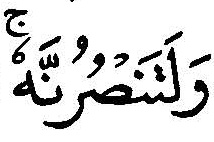 وَلَتَنْصُرُنَّهٗۚ